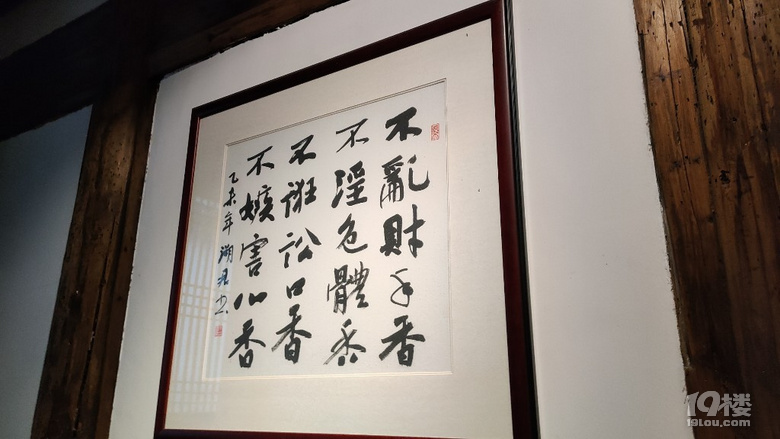 不亂財手香
不淫色體香
不誑訟口香
不嫉害心香
乙未年
书
19楼
19lou.com